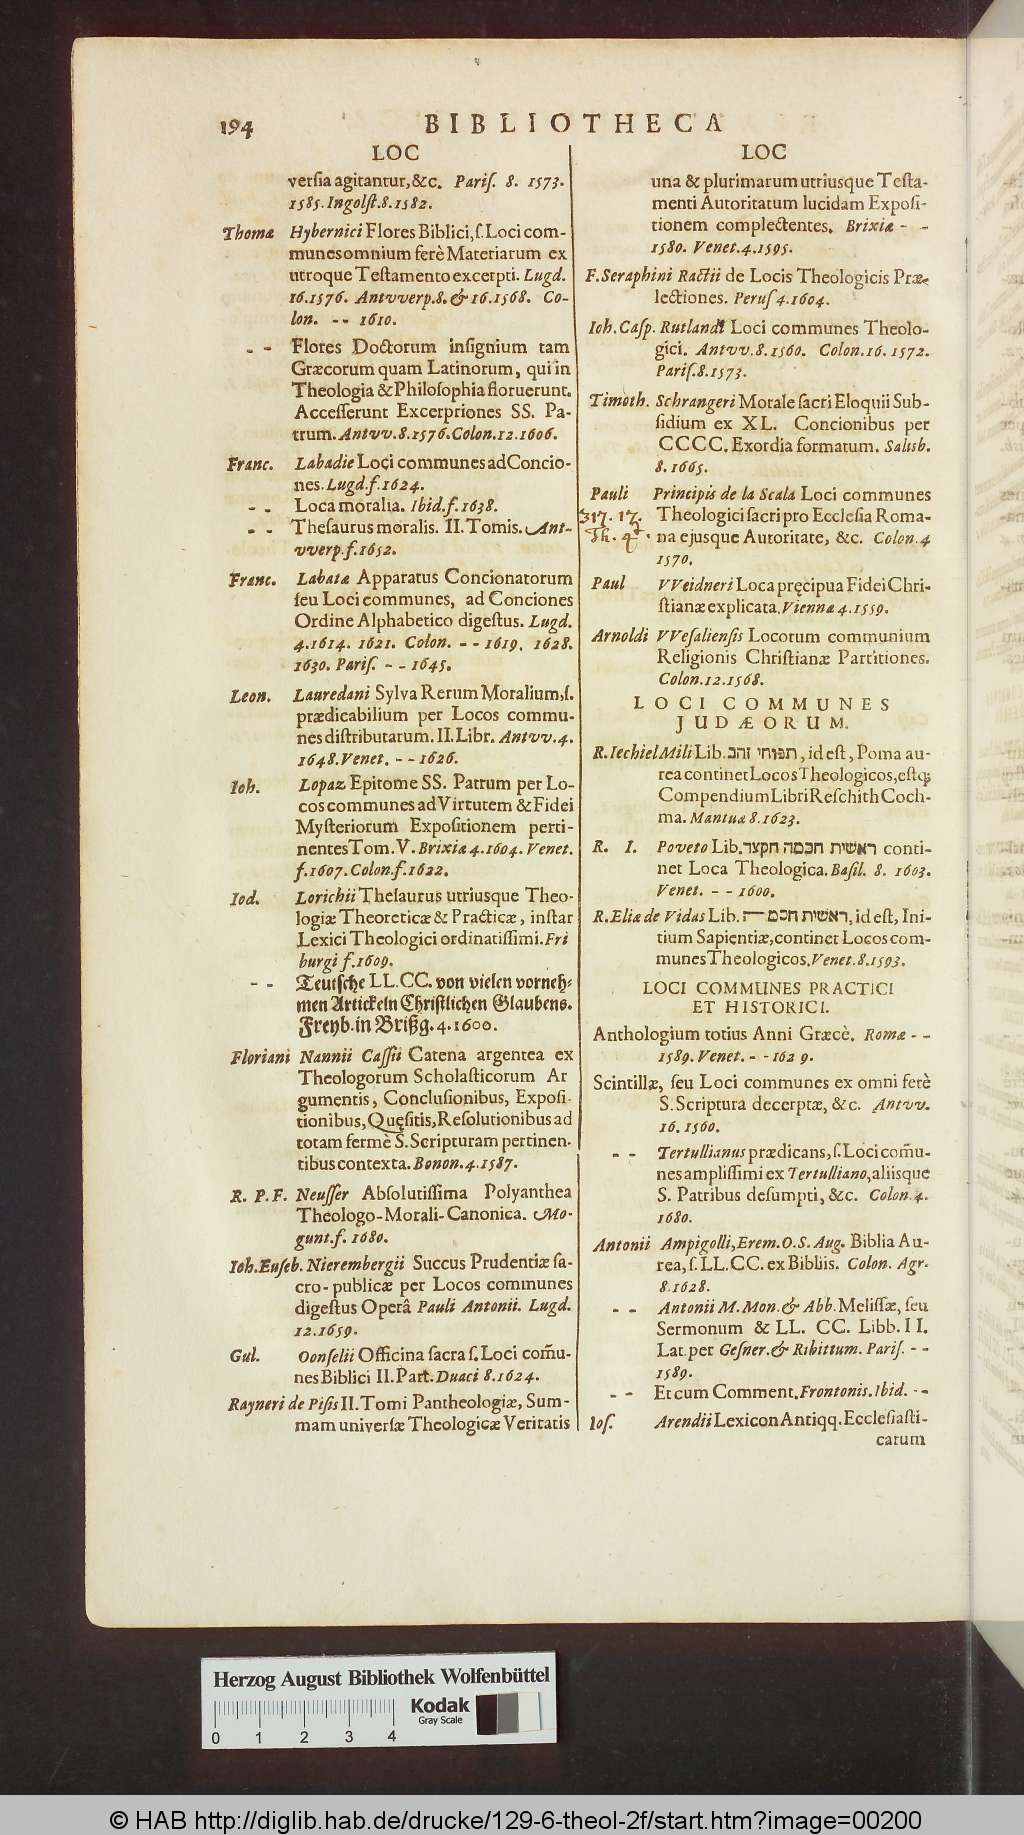 194 BIBLIOTHECA
LOC
versia agitantur, &c. Paris. 8. 1573.
1585. Ingolst. 8. 1582.
Thomæ Hybernici Flores Biblici, s. Loci com-
munes omnium ferè Materiarum ex
utroque Testamento excerpti. Lugd.
16. 1576. Antvverp. 8. & 16. 1568. Co-
lon. -- 1610.
-- Flores Doctorum insignium tam
Græcorum quam Latinorum, qui in
Theologia & Philosophia floruerunt.
Accesserunt Excerptiones SS. Pa-
trum. Antvv. 8. 1576. Colon. 12. 1606.
Franc. Labadie Loci communes ad Concio-
nes. Lugd. f. 1624.
-- Loca moralia. Ibid. f. 1638.
-- Thesaurus moralis. II. Tomis. Ant-
vverp. f. 1652.
Franc. Labatæ Apparatus Concionatorum
seu Loci communes, ad Conciones
Ordine Alphabetico digestus. Lugd.
4. 1614. 1621. Colon. -- 1619. 1628.
1630. Paris. -- 1645.
Leon. Lauredani Sylva Rerum Moralium, s.
prædicabilium per Locos commu-
nes distributarum. II. Libr. Antvv. 4.
1648. Venet. -- 1626.
Ioh. Lopaz Epitome SS. Patrum per Lo-
cos communes ad Virtutem & Fidei
Mysteriorum Expositionem perti-
nentes Tom. V. Brixiæ 4. 1604. Venet.
f. 1607. Colon. f. 1622.
Iod. Lorichii Thesaurus utriusque Theo-
logiæ Theoreticæ & Practicæ, instar
Lexici Theologici ordinatissimi. Fri
burgi f. 1609.
-- Teutsche LL. CC. von vielen vorneh-
men Artickeln Christlichen Glaubens.
Freyb. in Brißg. 4. 1600.
Floriani Nannii Cassii Catena argentea ex
Theologorum Scholasticorum Ar
gumentis, Conclusionibus, Exposi-
tionibus, Quęsitis, Resolutionibus ad
totam fermè S. Scripturam pertinen-
tibus contexta. Bonon. 4. 1587.
R. P. F. Neusser Absolutissima Polyanthea
Theologo-Morali-Canonica. Mo-
gunt. f. 1680.
Ioh. Euseb. Nierembergii Succus Prudentiæ sa-
cro-publicæ per Locos communes
digestus Operâ Pauli Antonii. Lugd.
12. 1659.
Gul. Oonselii Officina sacra s. Loci com̃u-
nes Biblici II. Part. Duaci 8. 1624.
Rayneri de Pisis II. Tomi Pantheologiæ, Sum-
mam universæ Theologicæ Veritatis
LOC
una & plurimarum utriusque Testa-
menti Autoritatum lucidam Exposi-
tionem complectentes. Brixiæ --
1580. Venet. 4. 1595.
F. Seraphini Ractii de Locis Theologicis Præ-
lectiones. Perus 4. 1604.
Ioh. Casp. Rutlandi Loci communes Theolo-
gici. Antvv. 8. 1560. Colon. 16. 1572.
Paris. 8. 1573.
Timoth. Schrangeri Morale sacri Eloquii Sub-
sidium ex XL. Concionibus per
CCCC. Exordia formatum. Salisb.
8. 1665.
Pauli Principis de la Scala Loci communes
317. 17. Theologici sacri pro Ecclesia Roma-
Th. 4º. na ejusque Autoritate, &c. Colon. 4
1570.
Paul VVeidneri Loca pręcipua Fidei Chri-
stianæ explicata. Viennæ 4. 1559.
Arnoldi VVesaliensis Locorum communium
Religionis Christianæ Partitiones.
Colon. 12. 1568.
LOCI COMMUNES
JUDÆORUM.
R. Iechiel Mili Lib. תפוחי זהב, id est, Poma au-
rea continet Locos Theologicos, estq;
Compendium Libri Reschith Coch-
ma. Mantuæ 8. 1623.
R. I. Poveto Lib. ראשית חכמה הקצר conti-
net Loca Theologica. Basil. 8. 1603.
Venet. -- 1600.
R. Eliæ de Vidas Lib. ראשית חכמה, id est, Ini-
tium Sapientiæ, continet Locos com-
munes Theologicos. Venet. 8. 1593.
LOCI COMMUNES PRACTICI
ET HISTORICI.
Anthologium totius Anni Græcè. Romæ --
1589. Venet. -- 162 9.
Scintillæ, seu Loci communes ex omni ferè
S. Scriptura decerptæ, &c. Antvv.
16. 1560.
-- Tertullianus prædicans, s. Loci com̃u-
nes amplissimi ex Tertulliano, aliisque
S. Patribus desumpti, &c. Colon. 4.
1680.
Antonii Ampigolli, Erem. O. S. Aug. Biblia Au-
rea, s. LL. CC. ex Bibliis. Colon. Agr.
8. 1628.
-- Antonii M. Mon. & Abb. Melissæ, seu
Sermonum & LL. CC. Libb. II.
Lat. per Gesner. & Ribittum. Paris. --
1589.
-- Et cum Comment. Frontonis. Ibid. --
Ios. Arendii Lexicon Antiqq. Ecclesiasti-
carum
Herzog August Bibliothek Wolfenbüttel
Kodak
Gray Scale
0 1 2 3 4
© HAB http://diglib.hab.de/drucke/129-6-theol-2f/start.htm?image=00200